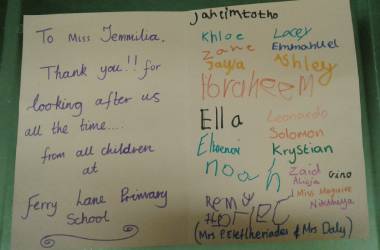 To Miss Jemmilia.
Thank you!! for
looking after us
all the time....
from all children
at
Ferry Lane Primary
School
jaheimtotho
Khloe Lacey
Zane Emmanuel
Jayla Ashley
Ibraheem
Ella Leonardo
Solomon
Krystian
noah Zaid Gino
Alicja
Miss Maguire
Remy Nikhhiya
(Mrs P. Eleftheriades & Mrs Daly)